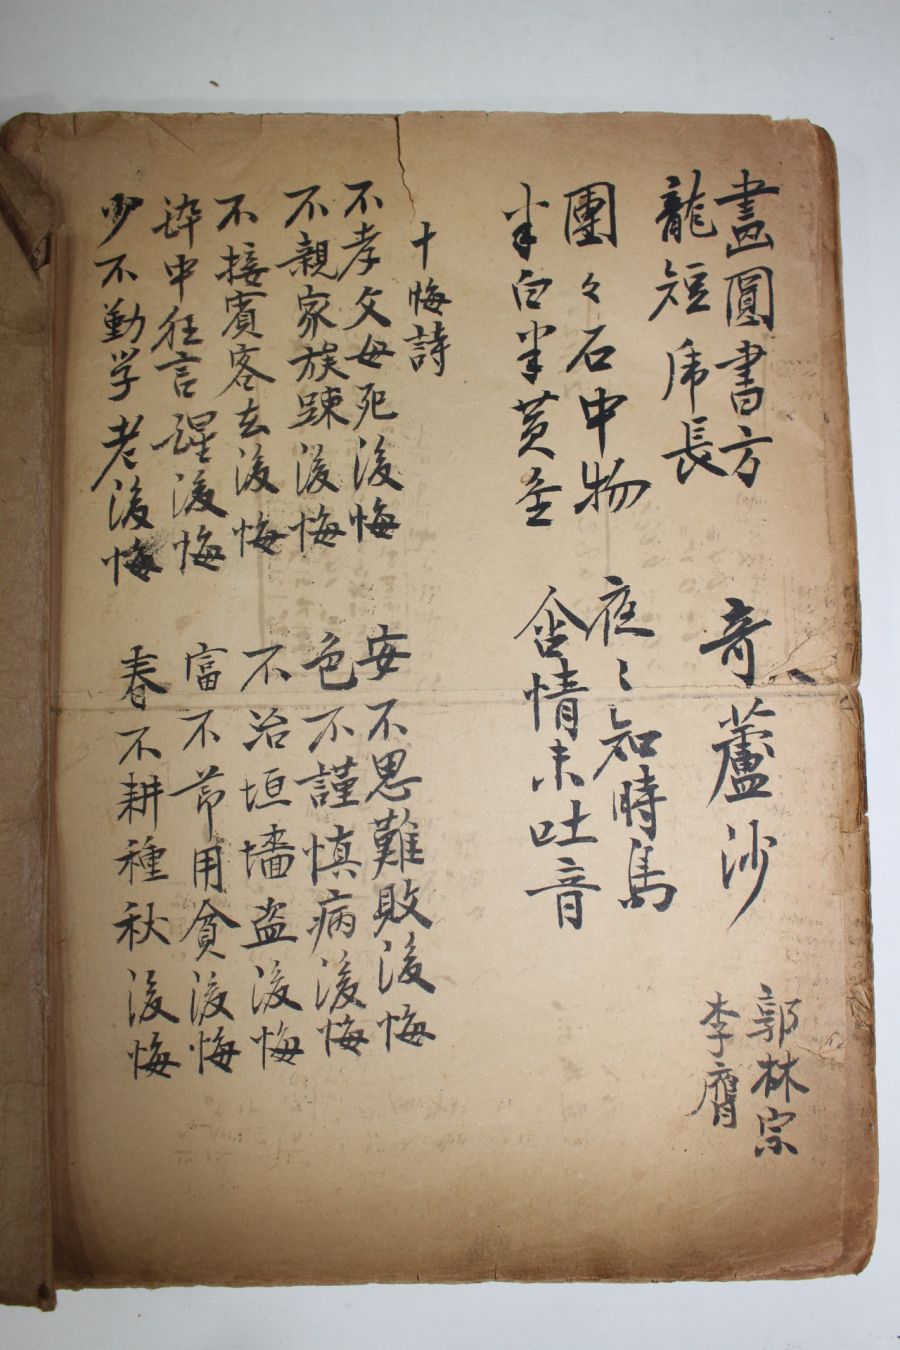 畫圓書方
奇蘆沙
郭林宗
龍短虎長
李膺
團々石中物
夜〻知時鳥
半白半黃金
含情未吐音
十悔詩
不孝父母死後悔
安不思難敗後悔
不親家族踈後悔
色不謹慎病後悔
不接賓客去後悔
不治垣墻盜後悔
酔中狂言醒後悔
富不節用貧後悔
少不勤学老後悔
春不耕種秋後悔